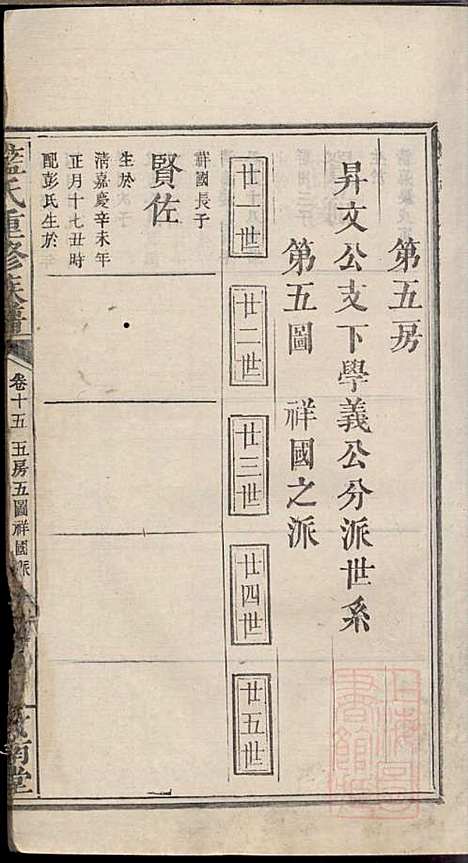 第五房
昇文公支下學義公分派世系
第五圖 祥國之派
廿一世
廿二世
廿三世
廿四世
廿五世
祥國長子
賢佐
生於
清嘉慶辛未年
正月十七丑時
配彭氏生於
藍氏重修族譜
卷十五 五房五圖祥國派
南堂
上海圖書館藏